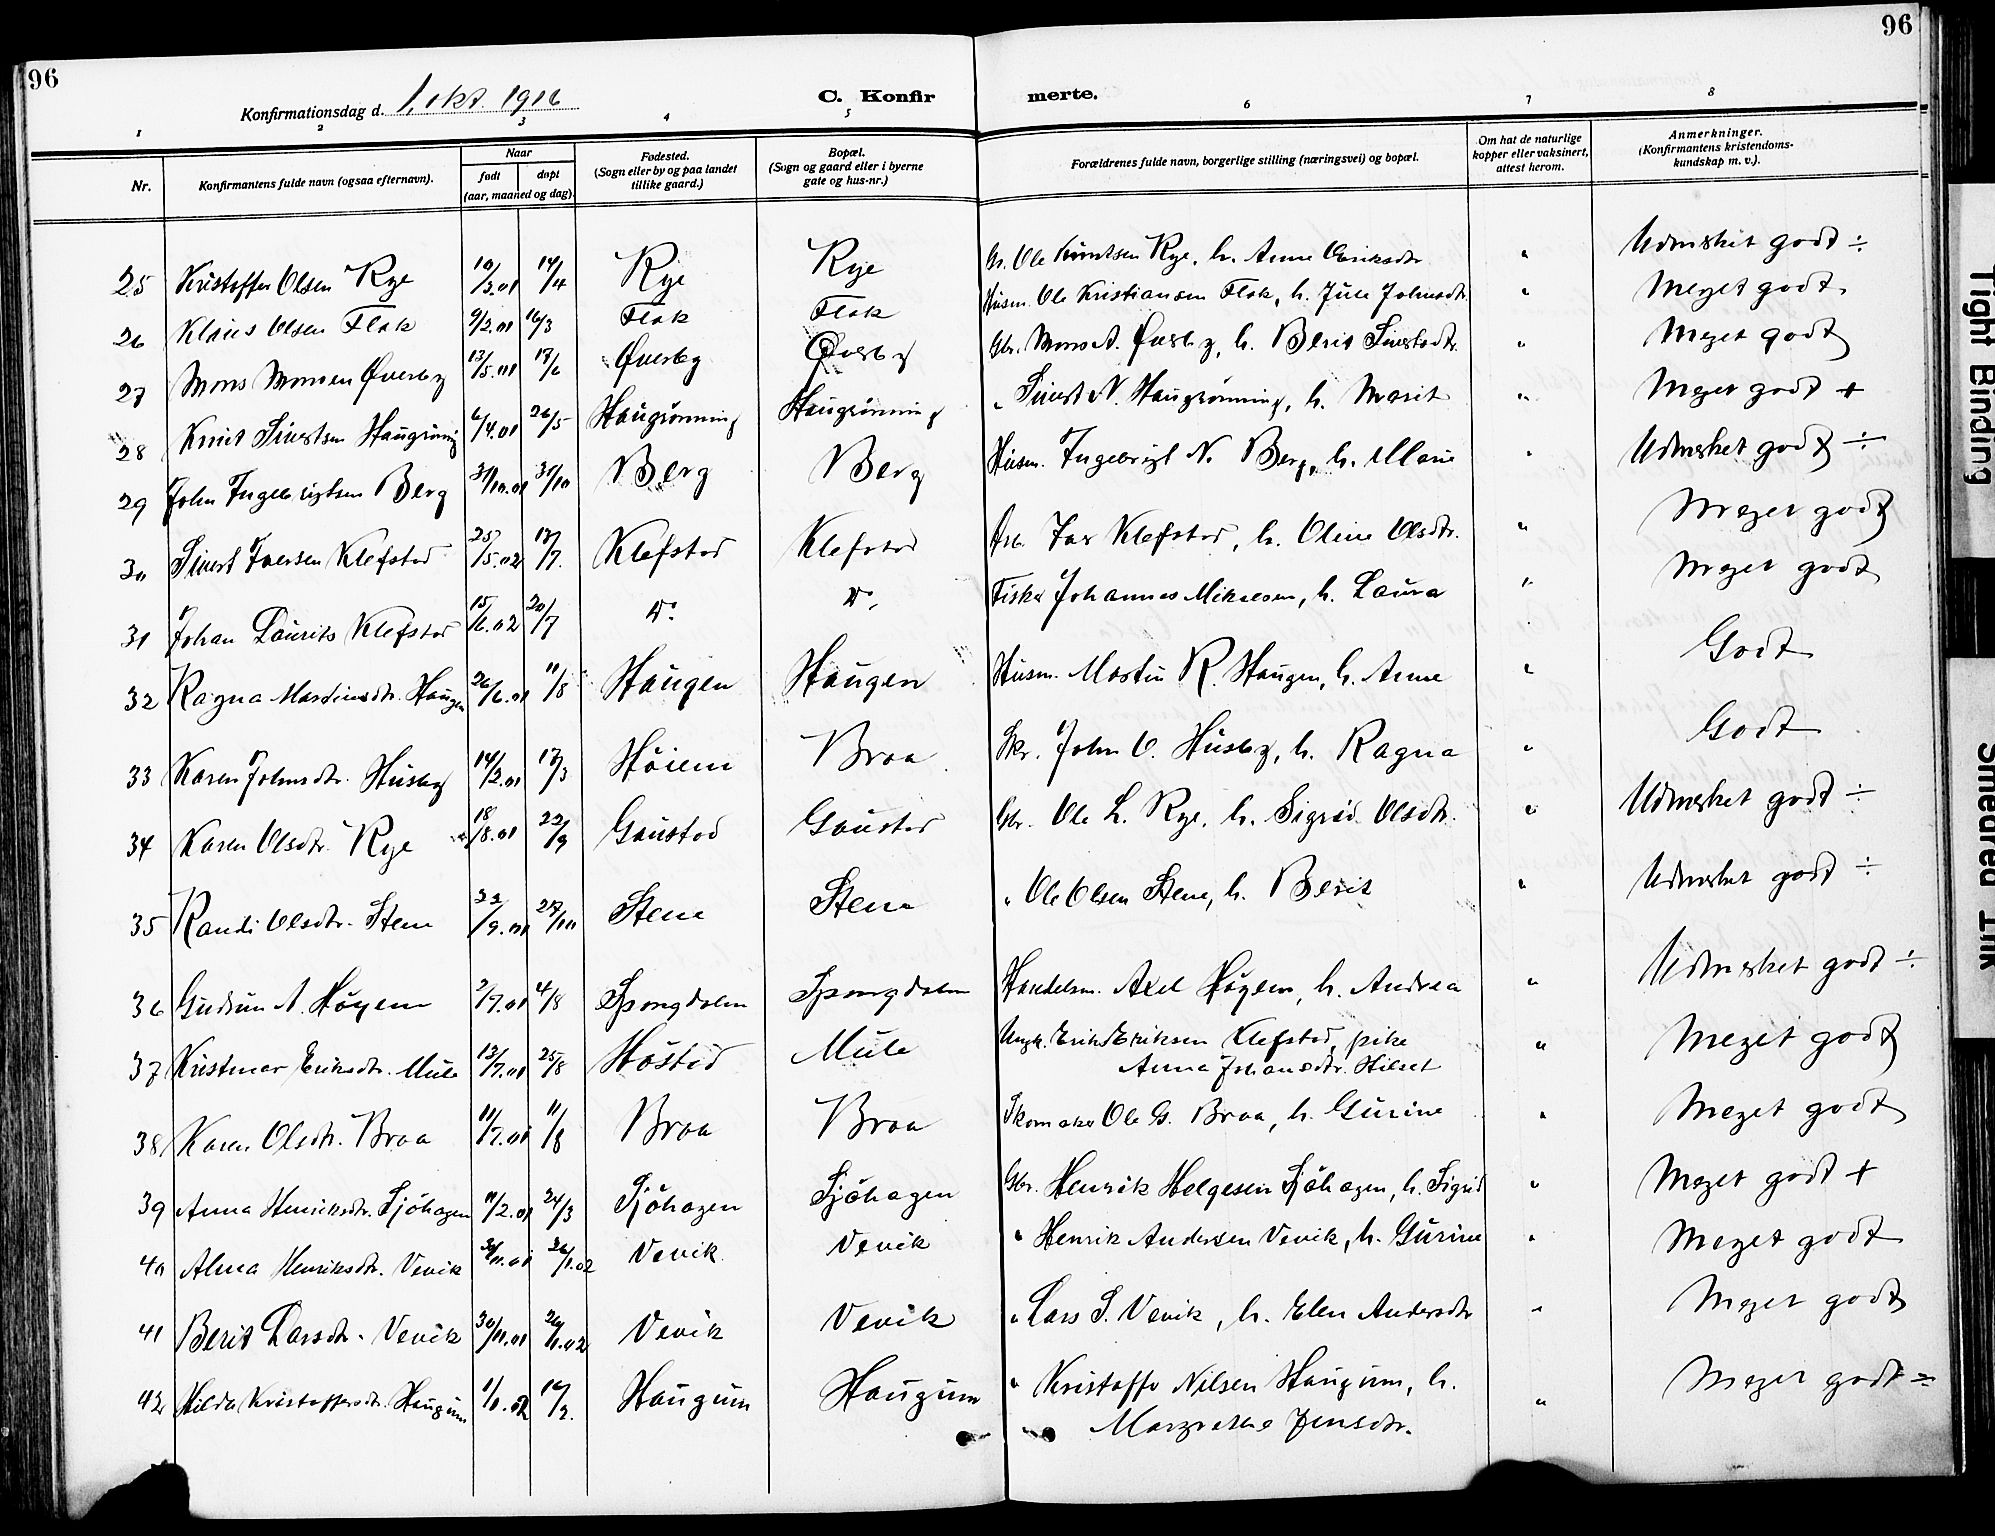 96
96
Konfirmationsdag d. 1. okt. 1916
C. Konfir
merte.
1 2 3 4 5 6 7 8
Nr.
Konfirmantens fulde navn (ogsaa efternavn).
Naar
født døpt
(aar, maaned og dag)
Fødested.
(Sogn eller by og paa landet
tillike gaard.)
Bopæl.
(Sogn og gaard eller i byerne
gate og hus-nr.)
Forældrenes fulde navn, borgerlige stilling (næringsvei) og bopæl.
Om hat de naturlige
kopper eller vaksinert,
attest herom.
Anmerkninger.
(Konfirmantens kristendoms-
kundskap m. v.).
25 Kristoffer Olsen Rye 10/3.01 14/4 Rye Rye Gr. Ole Knutsen Rye, h. Anne Eriksdtr. " Udmerket godt ÷
26 Klaus Olsen Flak 9/2.01 16/3 Flak Flak Husm. Ole Kristiansen Flak, h. Julie Johnsdtr. " Meget godt
27 Mons Monsen Øverby 13/5.01 17/6 Øverby Øverby Gbr. Mons A. Øverby, h. Berit Sivertsdtr. " Meget godt
28 Knut Sivertsen Haugrønning 6/4.01 26/5 Haugrønning Haugrønning " Sivert N. Haugrønning, h. Marit " Meget godt +
29 John Ingebrigtsen Berg 3/10.01 31/10 Berg Berg Husm. Ingebrigt N. Berg, h. Marie " Udmerket godt ÷
30 Sivert Iversen Klefstad 25/5.02 13/7. Klefstad Klefstad Iver Klefstad, h. Oline Olsdtr. " Meget godt
31 Johan Laurits Klefstad 15/6.02 20/7 Do. Do. Fisker Johannes Mikalsen, h. Laura " Meget godt
32 Ragna Martinsdtr. Haugen 26/6.01 11/8 Haugen Haugen Husm. Martin R. Haugen, h. Anne " Godt
33 Karen Johnsdtr. Husby 14/2.01 17/3 Høiem Braa Skr. John O. Husby, h. Ragna " Godt
34 Karen Olsdtr. Rye 18/8.01 22/9 Gaustad Gaustad Gbr. Ole L. Rye, h. Sigrid Olsdtr. " Udmerket godt ÷
35 Randi Olsdtr. Stene 22/9.01 27/10 Stene Stene " Ole Olsen Stene, h. Berit " Udmerket godt ÷
36 Gudrun A. Høyem 2/7.01 4/8 Spongdalen Spongdalen Handelsm. Axel Høyem, h. Andrea " Udmerket godt ÷
37 Kristmar Eriksdtr. Mule 13/7.01 25/8 Høstad Mule Ungk. Erik Eriksen Klefstad, pike
Anna Johansdtr. Hilset " Meget godt
38 Karen Olsdtr. Braa 11/7.01 11/8 Braa Braa Skomaker Ole G. Braa, h. Gurine " Meget godt
39 Anna Henriksdtr. Sjøhagen 11/2.01 24/3 Sjøhagen Sjøhagen Gbr. Henrik Helgesen Sjøhagen, h. Sigrid " Meget godt +
40 Alma Henriksdtr. Vevik 30/11.01 26/1.02 Vevik Vevik " Henrik Andersen Vevik, h. Gurine " Meget godt
41 Berit Larsdtr. Vevik 30/11.01 26/1.02 Vevik Vevik " Lars S. Vevik, h. Elen Andersdtr. " Meget godt
42 Hilda Kristoffersdtr. Haugum 1/1.02 16/2. Haugum Haugum " Kristoffer Nilsen Haugum, h.
Margrethe Jensdtr. " Meget godt ÷
Tight Binding
Smeared Ink